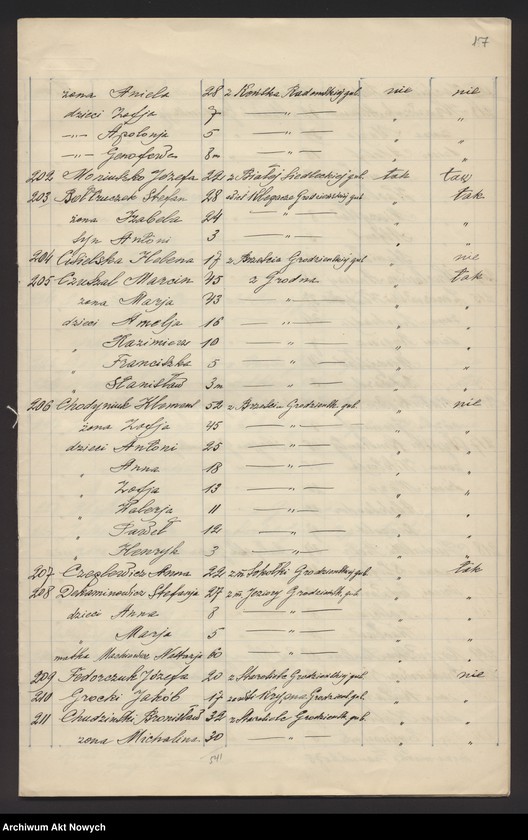 17
żona Aniela 28 z Końska Radomskiej gub. nie nie
dzieci Zofja 7 — " — " "
— " — Apolonja 5 — " — " "
— " — Genofewa 8m — " — " "
202 Józefa 22 z Białej Siedleckiej gub. tak tak
203 Stefan 28 wieś Grodzieńskiej gub " tak
żona Izabela 24 — " — " "
syn Antoni 3 — " — " "
204 Cisielska Helena 17 z Brześcia Grodzieńskiej gub " nie
205 Marcin 45 z Grodna " tak
żona Marja 43 " " "
dzieci Amelja 16 — " — " "
" Kazimierz 10 — " — " "
" Franciszka 5 — " — " "
" Stanisław 3m — " — " "
206 Chodyniuk Klemens 52 z Brześcia Grodzieńsk. gub. " nie
żona Zofja 45 — " — " "
dzieci Antoni 25 — " — " "
" Anna 18 — " — " "
" Zofja 13 — " — " "
" Walerja 11 — " — " "
" Paweł 12 — " — " "
" Henryk 3 — " — " "
207 Anna 22 z m. Sokółki Grodzieńskiej gub. " tak
208 Stefanja 27 z m. Jeziory Grodzieńsk. gub. " "
dzieci Anna 8 — " — " "
" Marja 5 — " — " "
matka 60 — " — " "
209 Fedorczuk Józefa 20 z Grodzieńskiej gub. " nie
210 Grocki Jakób 17 Grodzień gub. " "
211 Chudziński Bronisław 32 z Grodzieńsk gub. " "
żona Michalina 30 — " — " "
Archiwum Akt Nowych